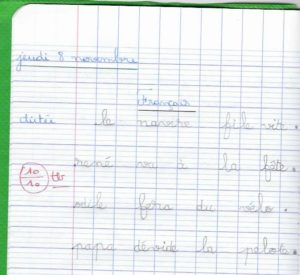 jeudi 8 novembre
Français
dictée le navire file vite.
rené va à la fête.
10/10 tb
fera du vélo.
papa dévide la pelote.